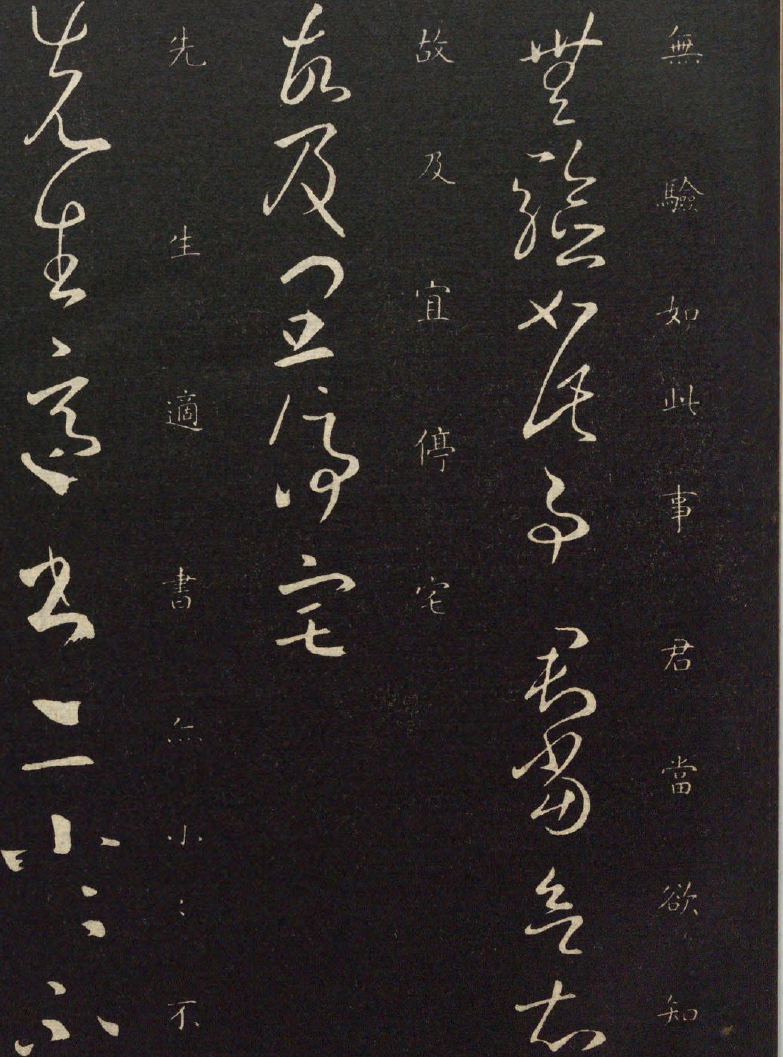 無驗如此事君當欲知
無驗如此事君當欲知
故及宜停宅
故及宜停宅
先生適書亦小〻不
先生適書亦小〻不